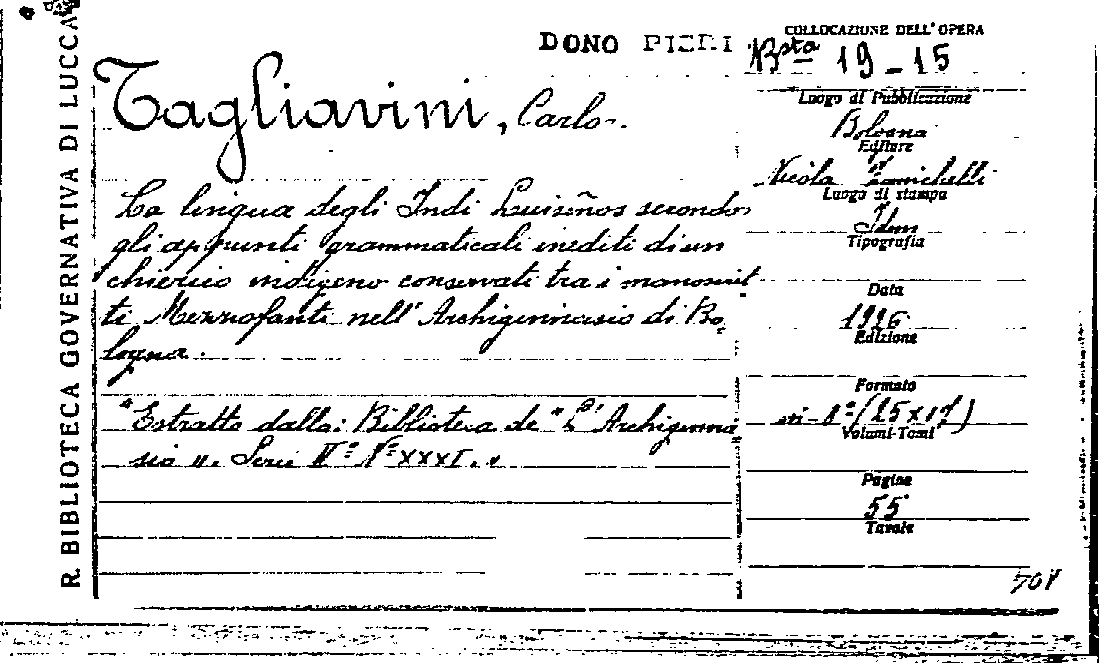 R. BIBLIOTECA GOVERNATIVA DI LUCCA
DONO PIERI
Tagliavini, Carlo.
La lingua degli Indi Luiseños secondo
gli appunti grammaticali inediti di un
chierico indigeno conservati tra i manoscrit-
ti Mezzofanti nell'Archiginnasio di Bo-
logna.
"Estratto dalla: Biblioteca de "L'Archiginna-
sio". Serie IIª Nº XXXI. "
COLLOCAZIONE DELL'OPERA
Bsta 19-15
Luogo di Pubblicazione
Bologna
Editore
Nicola Zanichelli
Luogo di stampa
Idem
Tipografia
Data
1926
Edizione
Formato
in-8º (25x17)
Volumi-Tomi
Pagine
55
Tavole